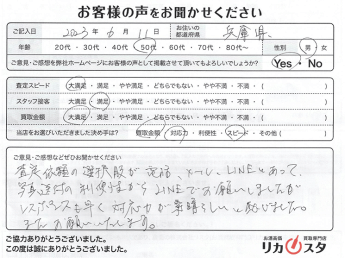 お客様の声をお聞かせください
ご記入日 2023年 6月 11日 お住いの都道府県 兵庫県
年齢 20代・30代・40代・50代・60代・70代・80代〜 性別 男・女
ご意見・ご感想を弊社ホームページにお客様の声として掲載させて頂いてもよろしいでしょうか? Yes・No
査定スピード 大満足・満足・やや満足・どちらでもない・やや不満・不満・( )
スタッフ接客 大満足・満足・やや満足・どちらでもない・やや不満・不満・( )
買取金額 大満足・満足・やや満足・どちらでもない・やや不満・不満・( )
当店をお選びいただきました決め手は? 買取金額・対応力・利便性・スピード・その他( )
ご意見・ご感想などぜひお聞かせください
査定依頼の選択肢が電話、メール、LINEとあって、
写真送付の利便性からLINEでお願いしましたが
レスポンスも早く対応力が素晴らしいと感じました。
またお願いいたします。
ご協力ありがとうございました。
この度は誠にありがとうございました。
お酒高価買取専門店
リカスタ